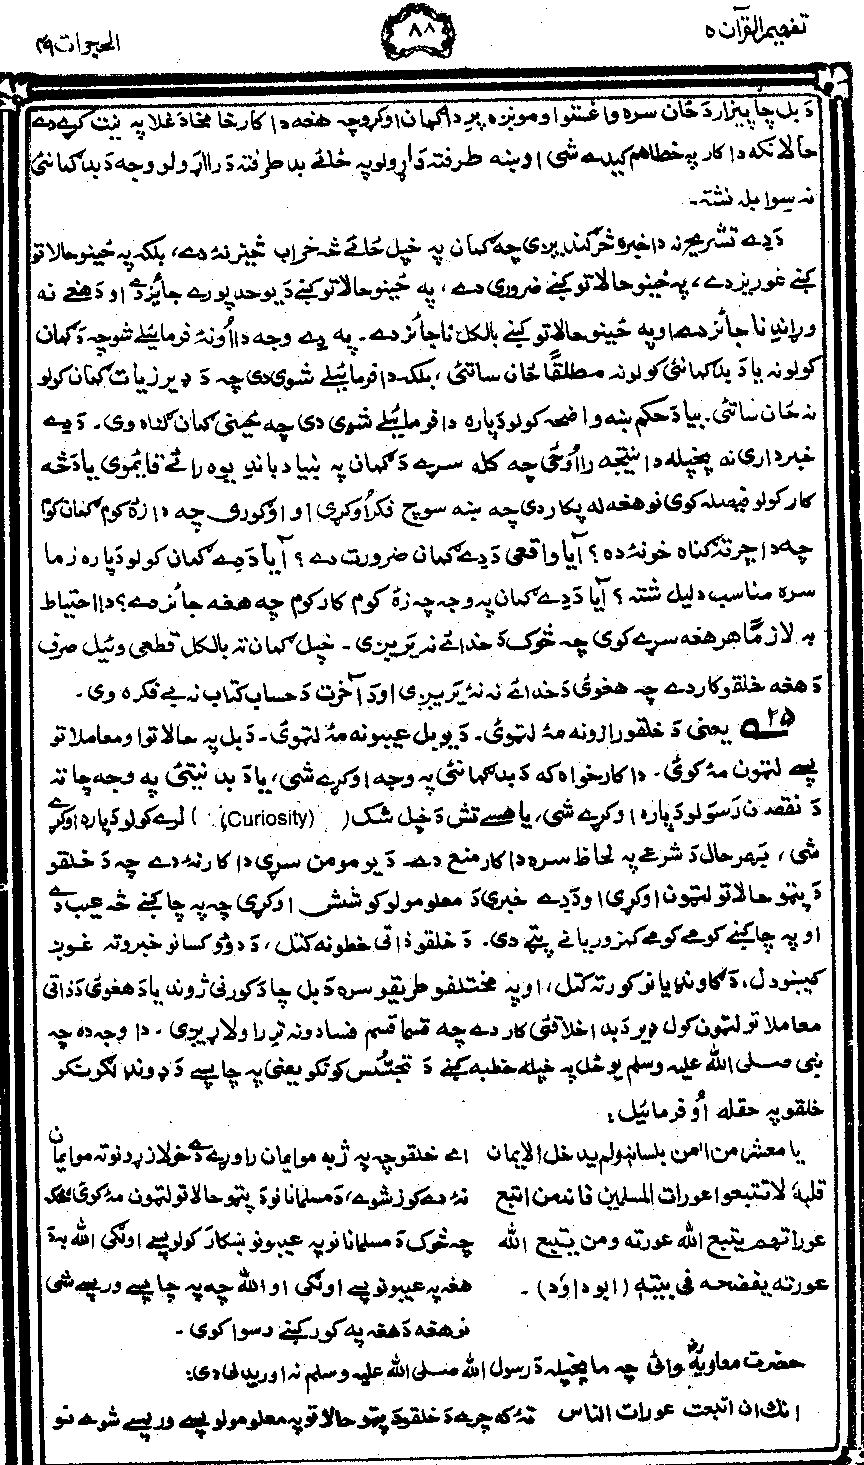 تفهیم القرآن ۵
۸۸
الحجرات ۴۹
دَ بل چا پیزار دَ ځان سره واغستو او مونږه پرِ دا ګمان اوکړو چه هغه دا کار خامخا دَ غلا په نیت کړے دے
حالانکه دا کار په خطا هم کېدے شی او ښه طرفته دَ اړولو په ځائے بد طرفته دَ را اړولو وجه دَ بد ګمانئ
نه سوا بله نشته۔
دَ دے تشریح نه دا خبره څرګندېږدی چه ګمان په خپل ځائے څه خراب څیز نۀ دے، بلکه په ځینو حالاتو
کښے غوریز دے، په ځینو حالاتو کښے ضروری دے، په ځینو حالاتو کښے دَ یو حد پورے جائز دے او دَ هغے نه
وړاندِ ناجائز دے او په ځینو حالاتو کښے بالکل ناجائز دے۔ په دِے وجه دا اُونۀ فرمائیلے شو چه دَ ګمان
کولو نه یا دَ بد ګمانئ کولو نه مطلقًا ځان ساتئ، بلکه دا فرمائیلے شوی دی چه دَ ډیر زیات ګمان کولو
نه ځان ساتئ۔ بیا دَ حکم ښه واضحه کولو دَ پاره دا فرمائیلے شوی دی چه ځینی ګمان ګناه وی۔ دَ دِے
خبرداری نه پخپله دا نتیجه را اُوځی چه کله سړے دَ ګمان په بنیاد باندِ یوه رائے قایموی یا دَ څه
کار کولو فیصله کوی نو هغه له پکار دی چه ښه سوچ فکر اُوکړی او اوګوری چه دا زۀ کوم ګمان کوم
چه دا چرته ګناه خو نۀ ده؟ آیا واقعی دَ دِے ګمان ضرورت دے؟ آیا دَ دِے ګمان کولو دَ پاره زما
سره مناسب دلیل شته؟ آیا دَ دِے ګمان په وجه چه زۀ کوم کار کوم چه هغه جائز دے؟ دا احتیاط
به لازمًا هر هغه سړے کوی چه څوک دَ خدائے نه یَرېږی۔ خپل ګمان ته بالکل قطعی وئیل صرف
دَ هغه خلقو کار دے چه هغوئ دَ خدائے نه نۀ یَرېږی او دَ آخرت دَ حساب کتاب نه بے فکره وی۔
۲۵ یعنی دَ خلقو رازونه مۀ لټوئ۔ دَ یو بل عیبونه مۀ لټوئ۔ دَ بل په حالاتو او معاملاتو
پسے لټون مۀ کوئ۔ دا کار خواه که دَ بد ګمانئ په وجه اوکړے شی، یا دَ بد نیتئ په وجه چا ته
دَ نقصان رَسولو دَ پاره اوکړے شی، یا هسے تش دَ خپل شک (Curiosity) لرے کولو دَ پاره اوکړے
شی، بَهرحال دَ شرعے په لحاظ سره دا کار منع دے۔ دَ یو مومن سړی دا کار نۀ دے چه دَ خلقو
دَ پټو حالاتو لټون اوکړی او دَ دِے خبری دَ معلومولو کوشش اوکړی چه په چا کښے څه عیب دے
او په چا کښے کومے کومے کمزوریانے پټے دی۔ دَ خلقو ذاتی خطونه کتل، دَ دوؤ کسانو خبرو ته غوږ
کیښودل، دَ ګاونډیانو کور ته کتل، او په مختلفو طریقو سره دَ بل چا دَ کورنی ژوند یا دَ هغوئ دَ ذاتی
معاملاتو لټون کول ډیر دَ بد اخلاقئ کار دے چه قسما قسم فسادونه ترِ را ولاړېږی۔ دا وجه ده چه
نبی صلی الله علیه وسلم یو ځل په خپله خطبه کښے دَ تجسّس کوٗنکو یعنی په چا پسے دَ ډونډ لګوٗنکو
خلقو په حقله اُو فرمائیل:
یا معشر من اٰمن بلسانه ولم یدخل الایمان اے خلقو چه په ژبه مو ایمان راوړے دے خو لا زړونو ته مو ایمان
قلبهٗ لا تتبعوا عورات المسلمین فانه من اتبع نۀ دے کوز شوے، دَ مسلمانانو دَ پټو حالاتو لټون مۀ کوئ ځکه
عوراتهم یتبع الله عورته ومن یتبع الله چه څوک دَ مسلمانانو په عیبونو ښکاره کولو پسے اولګی الله به دَ
عورته یفضحه فی بیته (ابوداوٗد)۔ هغه په عیبونو پسے اولګی او الله چه په چا پسے ورپسے شی
نو هغه دَ هغه په کور کښے رسوا کوی۔
حضرت معاویهؓ وائی چه ما پخپله دَ رسول الله صلی الله علیه وسلم نه اورېدلی دی:
انك ان اتبعت عورات الناس تۀ که چرے دَ خلقو دَ پټو حالاتو په معلومولو پسے ورپسے شوے نو